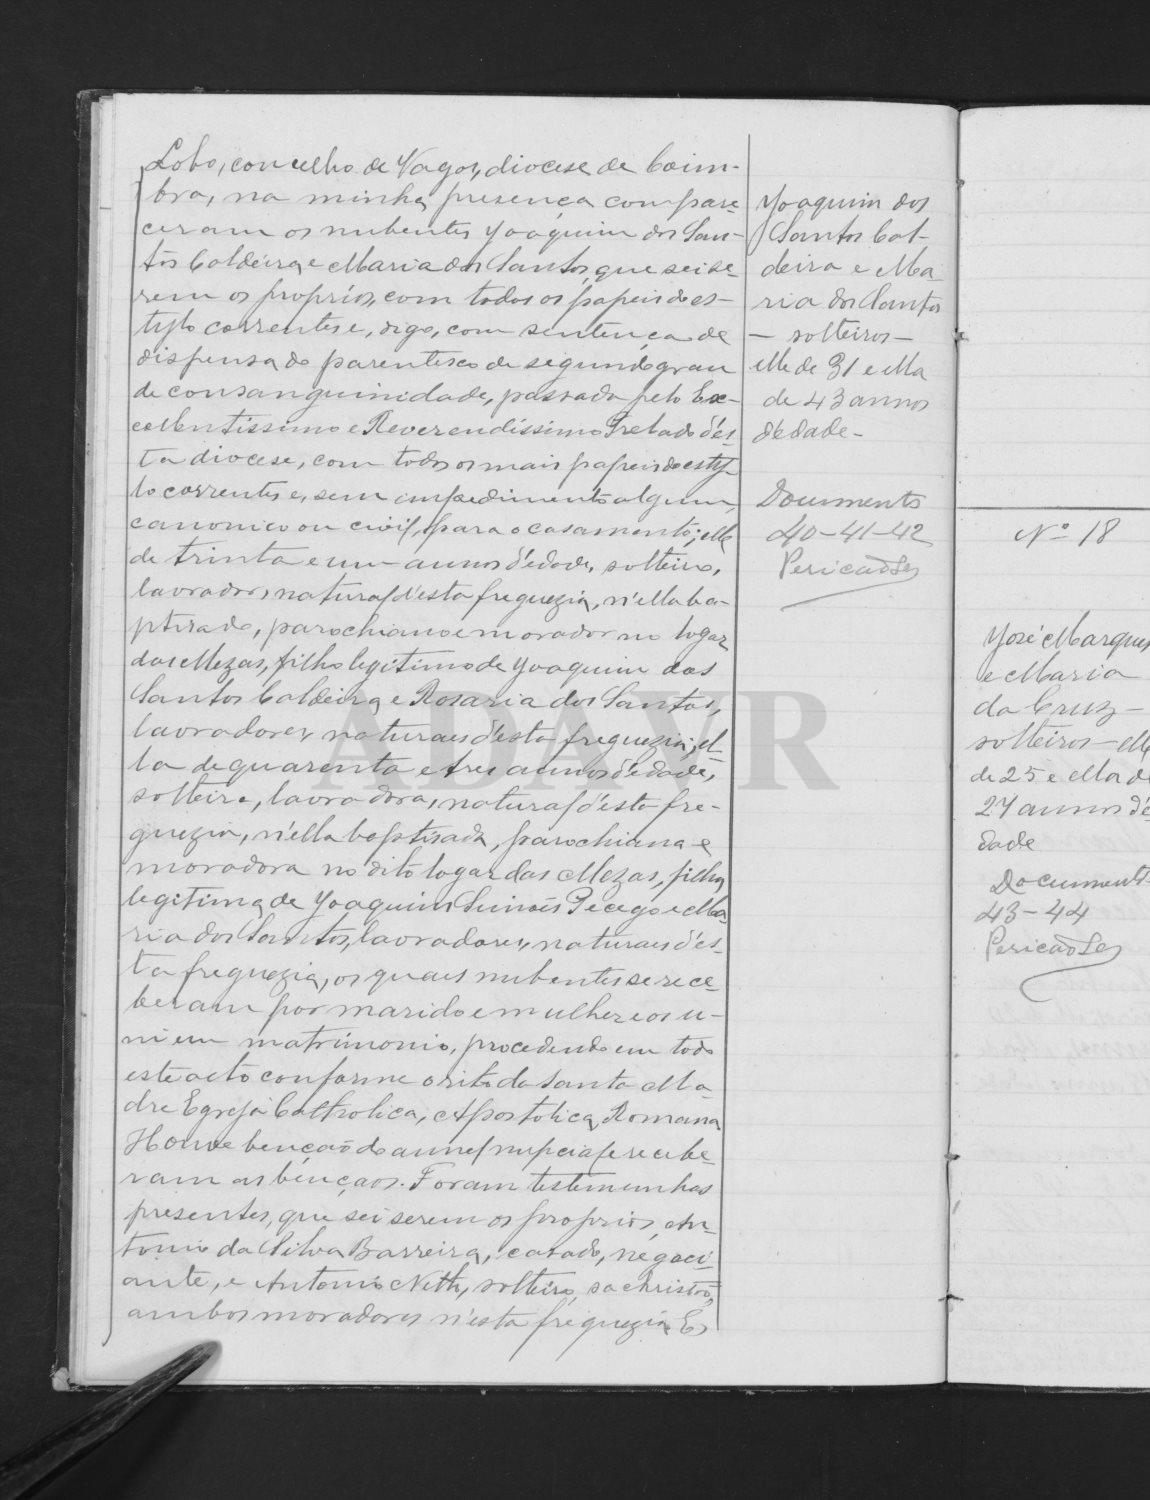 Lobo, concelho de Vagos, diocese de Coim-
bra, na minha presença compare-
ceram os nubentes Joaquim dos San-
tos Caldeira e Maria dos Santos, que sei se-
rem os proprios, com todos os papeis do es-
tylo correntes e, digo, com sentença de
dispensa do parentesco de segundo grau
de consanguinidade, passada pelo Ex-
cellentissimo e Reverendissimo Prelado d'es-
ta diocese, com todos os mais papeis do esty-
lo correntes e, sem impedimento algum,
canonico ou civil, para o casamento; elle
de trinta e um annos d'edade, solteiro,
lavrador, natural d'esta freguezia, n'ella ba-
ptisado, parochiano e morador no logar
das Mezas, filho legitimo de Joaquim dos
Santos Caldeira e Rosaria dos Santos,
lavradores, naturaes d'esta freguezia; el-
la de quarenta e tres annos d'edade,
solteira, lavradora, natural d'esta fre-
guezia, n'ella baptisada, parochiana e
moradora no dito logar das Mezas, filha
legitima de Joaquim Simões Pecego e Ma-
ria dos Santos, lavradores, naturaes d'es-
ta freguezia, os quaes nubentes se rece-
beram por marido e mulher e os u-
ni em matrimonio, procedendo em todo
este acto conforme o rito da Santa Ma-
dre Egreja Catholica, Apostolica, Romana
Houve benção do annel nupcial e recebe-
ram as bençaos. Foram testemunhas
presentes, que sei serem os proprios, An-
tonio da Silva Barreira, casado, negoci-
ante, e Antonio Neth, solteiro, sachristão,
ambos moradores n'esta freguezia. E
Joaquim dos
Santos Cal-
deira e Ma-
ria dos Santos
- solteiros -
elle de 31 e ella
de 43 annos
d'edade -
Documentos
40-41-42
Pericão
Nº 18
José Marques
e Maria
da Cruz -
solteiros - elle
de 25 e ella de
27 annos d'e
dade
Document
43-44
Pericão
ADAVR